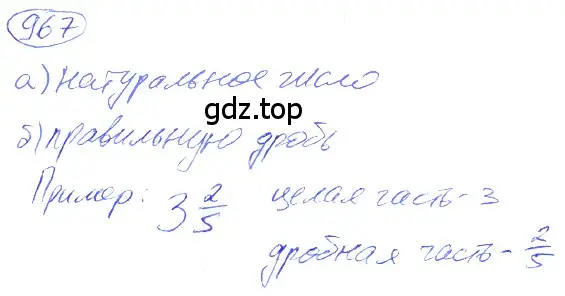 967
а) натуральное число
gdz.top
б) правильную дробь
Пример: 3 2/5 целая часть - 3
дробная часть - 2/5